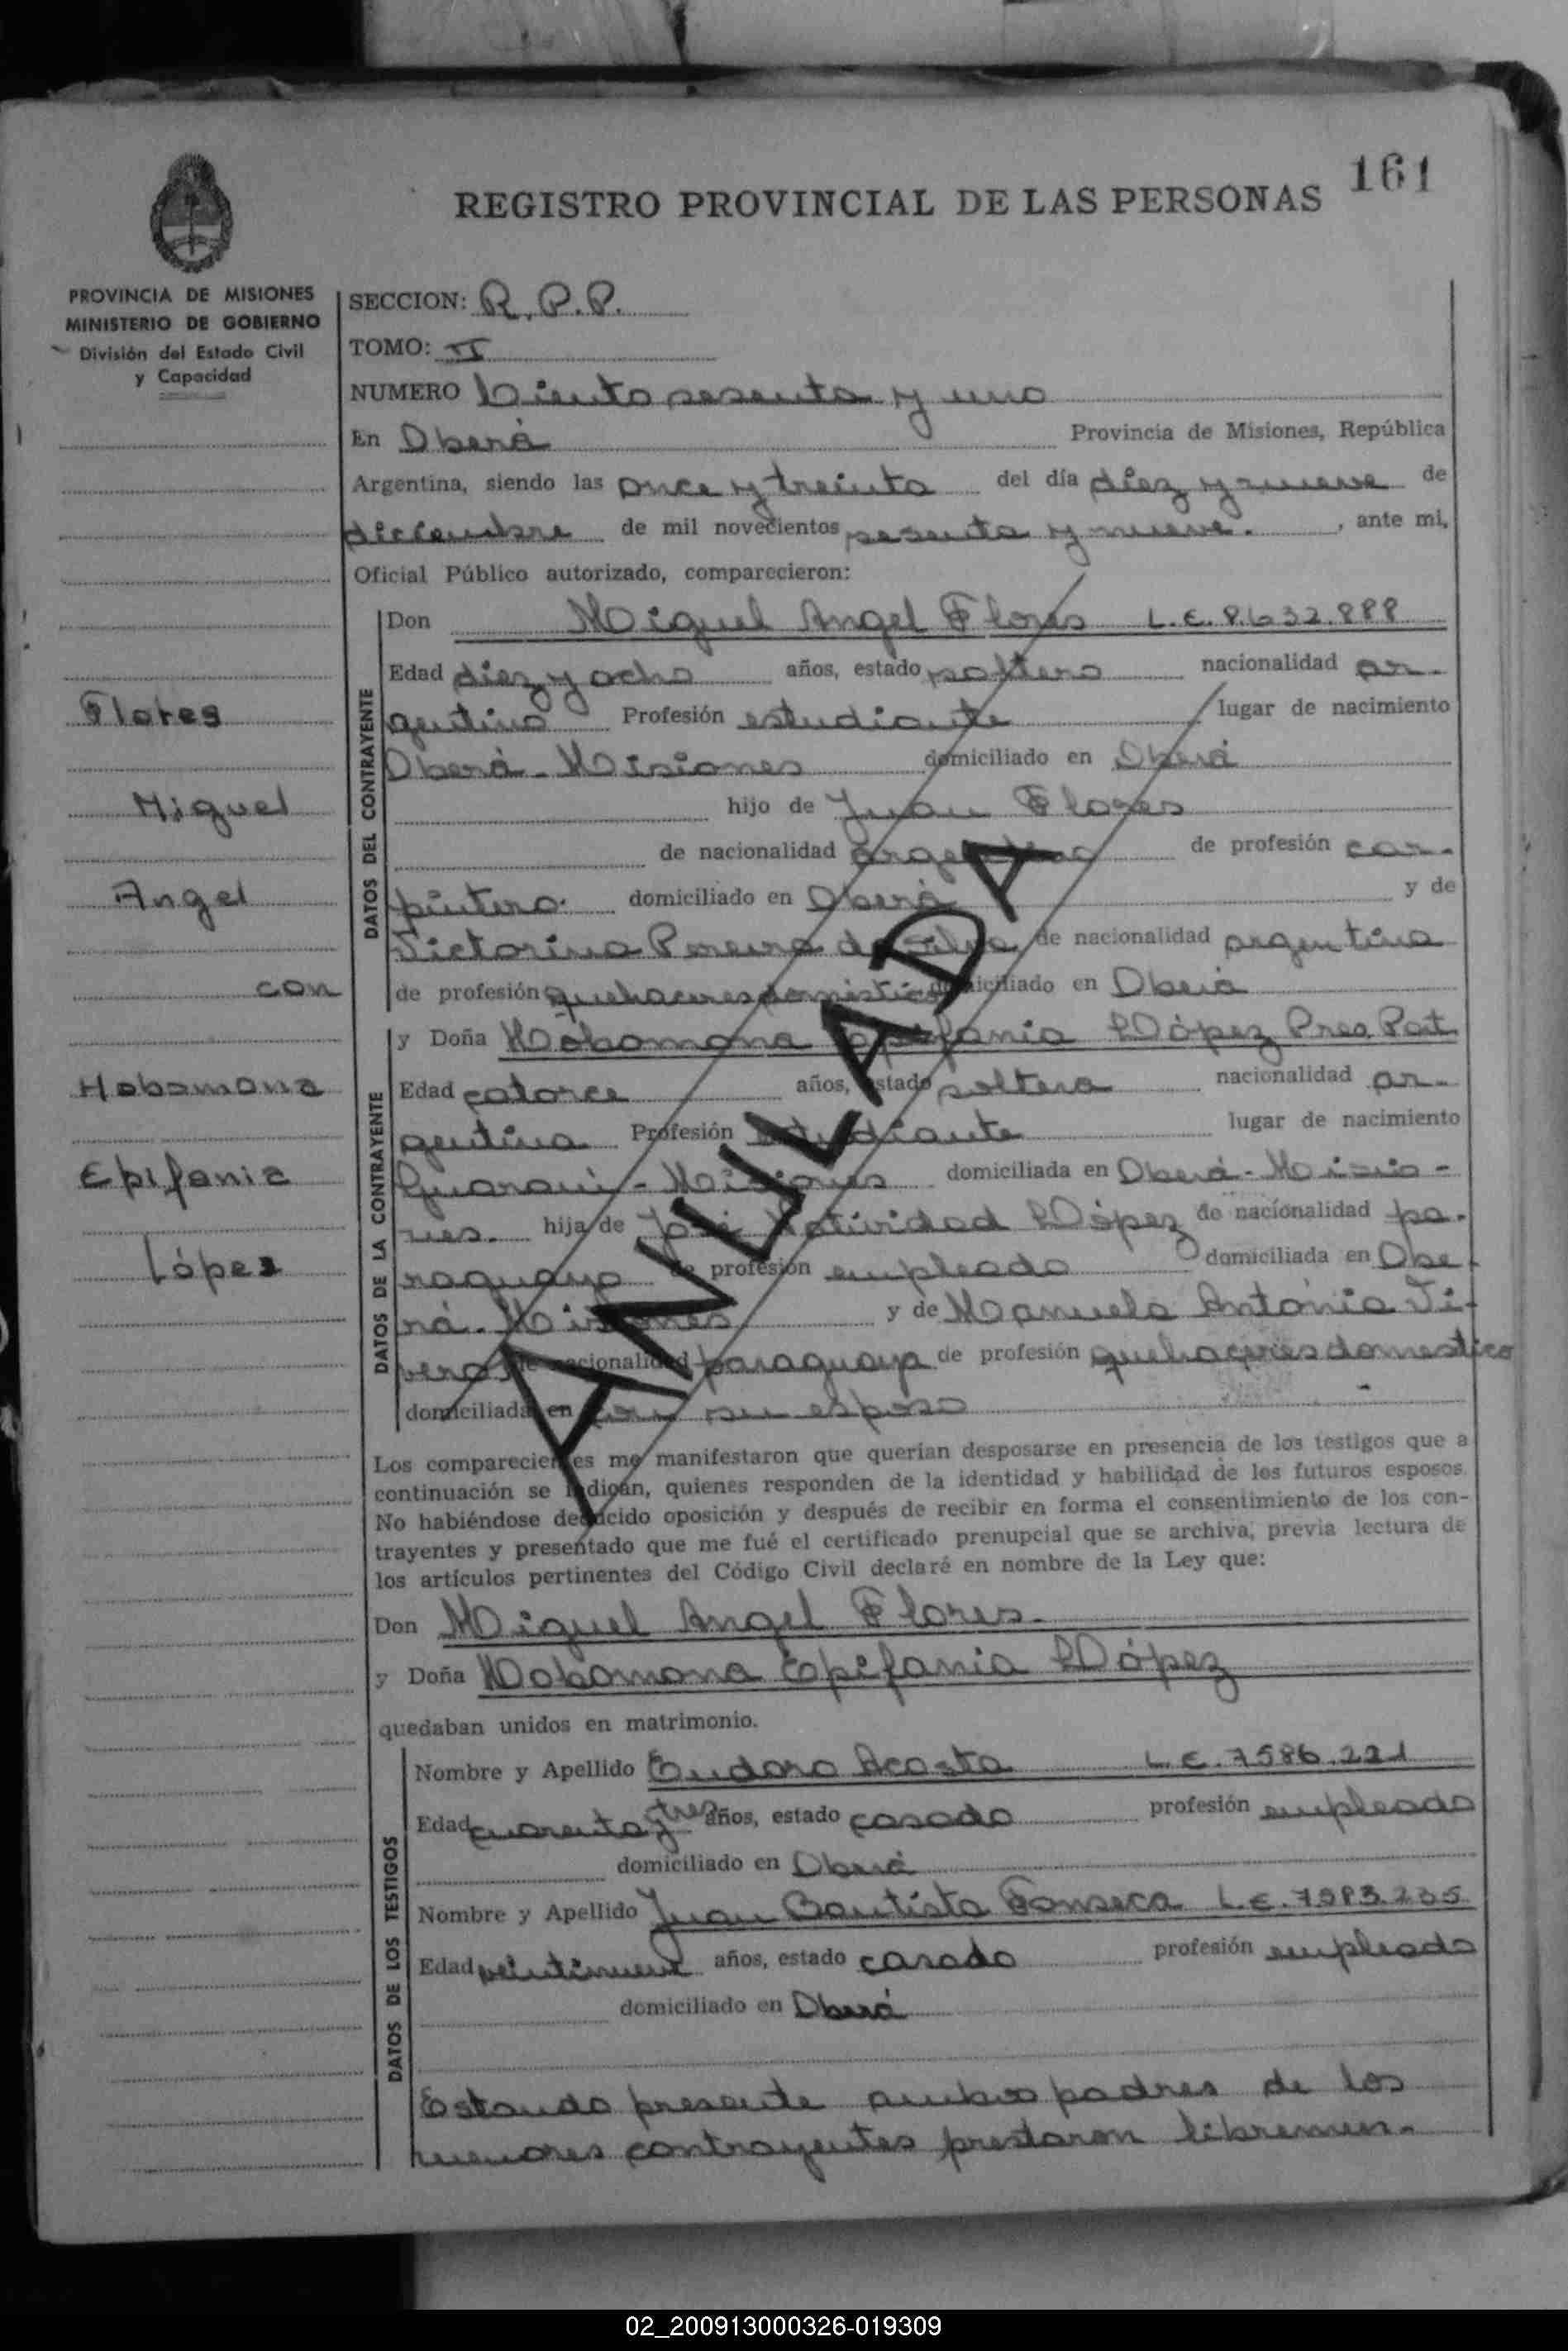 161
REGISTRO PROVINCIAL DE LAS PERSONAS
PROVINCIA DE MISIONES
MINISTERIO DE GOBIERNO
División del Estado Civil
y Capacidad
SECCION: R.P.P.
TOMO: II
NUMERO Ciento sesenta y uno
En Oberá Provincia de Misiones, República
Argentina, siendo las once y treinta del día diez y nueve de
diciembre de mil novecientos sesenta y nueve. , ante mi,
Oficial Público autorizado, comparecieron:
Flores
Miguel
Angel
con
Hobomona
Epifania
López
DATOS DEL CONTRAYENTE
Don Miguel Angel Flores L.E. 8.632.888
Edad diez y ocho años, estado soltero nacionalidad ar-
gentino Profesión estudiante lugar de nacimiento
Oberá - Misiones domiciliado en Oberá
hijo de Juan Flores
de nacionalidad argentino de profesión car-
pintero. domiciliado en Oberá y de
Victorina Pereira da Silva de nacionalidad argentina
de profesión quehaceres domésticos domiciliado en Oberá
DATOS DE LA CONTRAYENTE
y Doña Hobomona Epifania López Pres. Part.
Edad catorce años, estado soltera nacionalidad ar-
gentina Profesión estudiante lugar de nacimiento
Guaraní - Misiones domiciliada en Oberá - Misio-
nes. hija de José Natividad López de nacionalidad pa-
raguayo de profesión empleado domiciliada en Obe-
rá - Misiones y de Manuela Antonia Ri-
vero de nacionalidad paraguaya de profesión quehaceres domestico
domiciliada en con su esposo
ANULADA
Los comparecientes me manifestaron que querían desposarse en presencia de los testigos que a
continuación se indican, quienes responden de la identidad y habilidad de los futuros esposos.
No habiéndose deducido oposición y después de recibir en forma el consentimiento de los con-
trayentes y presentado que me fué el certificado prenupcial que se archiva, previa lectura de
los artículos pertinentes del Código Civil declaré en nombre de la Ley que:
Don Miguel Angel Flores.
y Doña Hobomona Epifania López
quedaban unidos en matrimonio.
DATOS DE LOS TESTIGOS
Nombre y Apellido Eudoro Acosta L.E. 7586.221
Edad cuarenta y tres años, estado casado profesión empleado
domiciliado en Oberá
Nombre y Apellido Juan Bautista Fonseca L.E. 7.583.235
Edad veintinueve años, estado casado profesión empleado
domiciliado en Oberá
Estando presente ambos padres de los
menores contrayentes prestaron libremen-
02_200913000326-019309